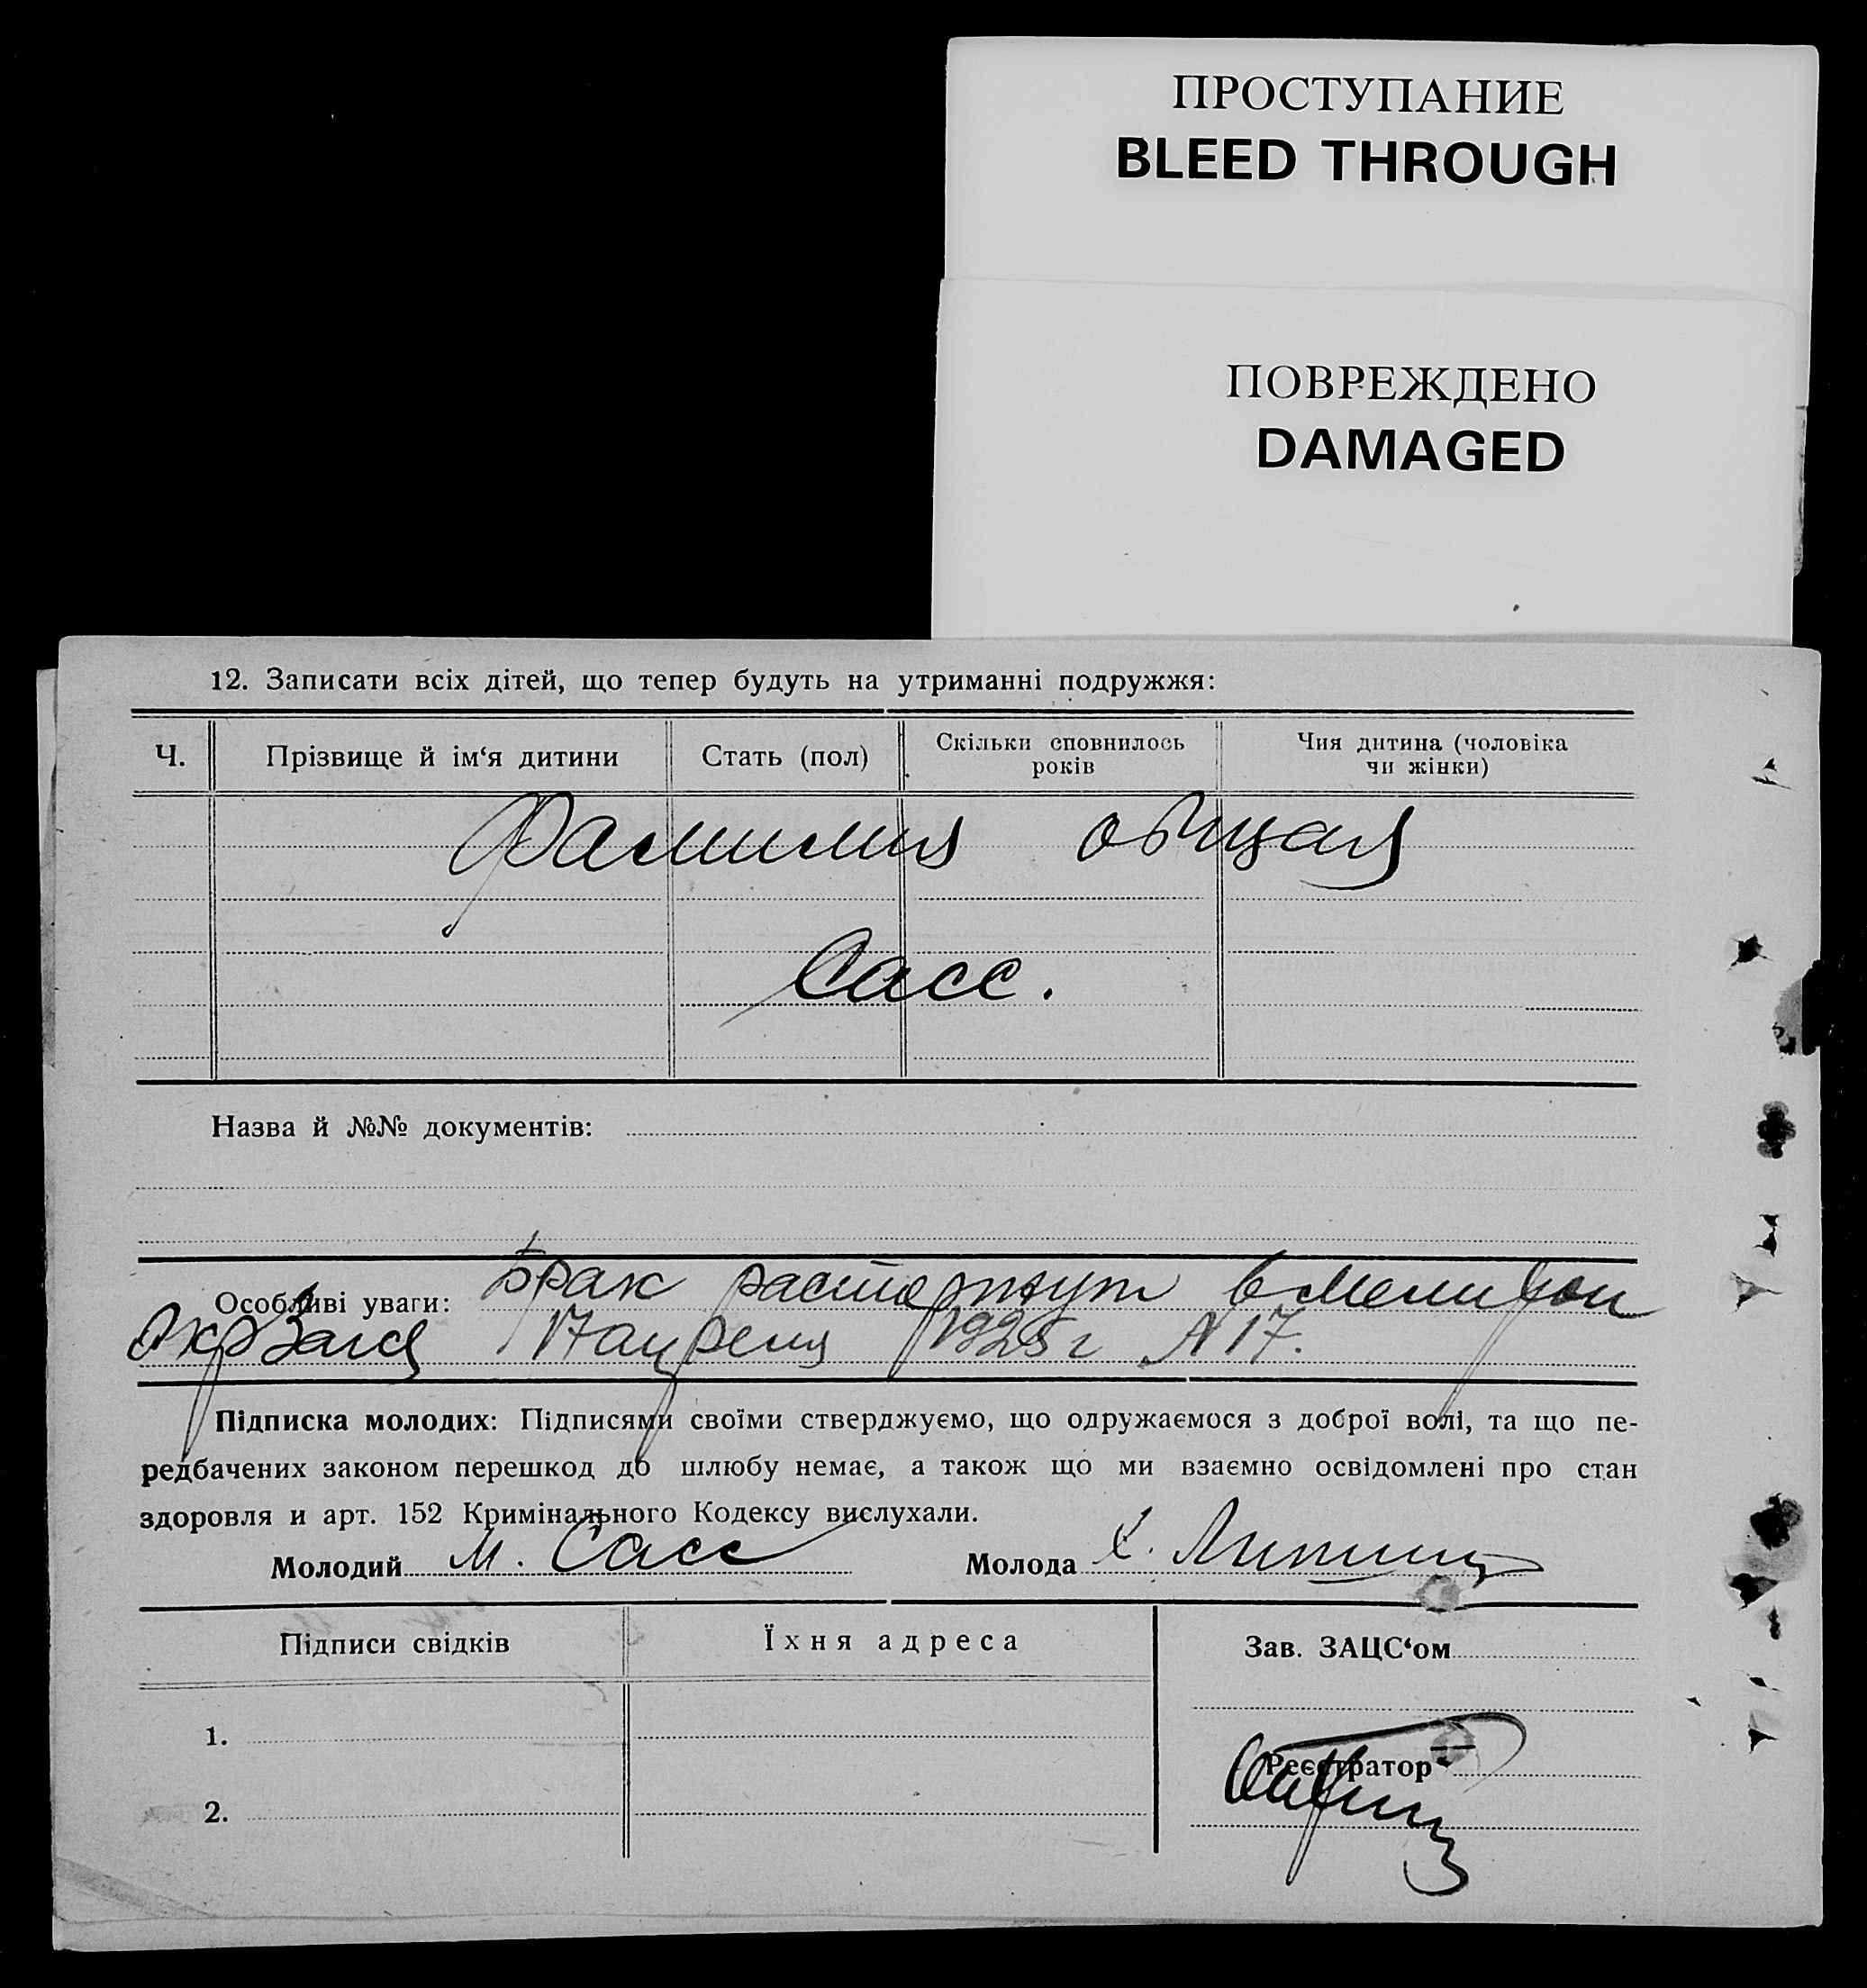 ПРОСТУПАНИЕ
BLEED THROUGH
ПОВРЕЖДЕНО
DAMAGED
12. Записати всіх дітей, що тепер будуть на утриманні подружжя:
Ч. Прізвище й ім‘я дитини Стать (пол) Скільки сповнилось років Чия дитина (чоловіка чи жінки)
Фамилия общая
Сасс.
Назва й №№ документів:
Особливі уваги: Брак расторгнут в Мелитоп
Окр Загсе 17 апреля 1925 г N 17.
Підписка молодих: Підписями своїми стверджуємо, що одружаємося з доброї волі, та що пе-
редбачених законом перешкод до шлюбу немає, а також що ми взаємно освідомлені про стан
здоровля и арт. 152 Кримінального Кодексу вислухали.
Молодий М. Сасс Молода Х.
Підписи свідків Їхня адреса Зав. ЗАЦС‘ом
1.
Реєстратор
2.